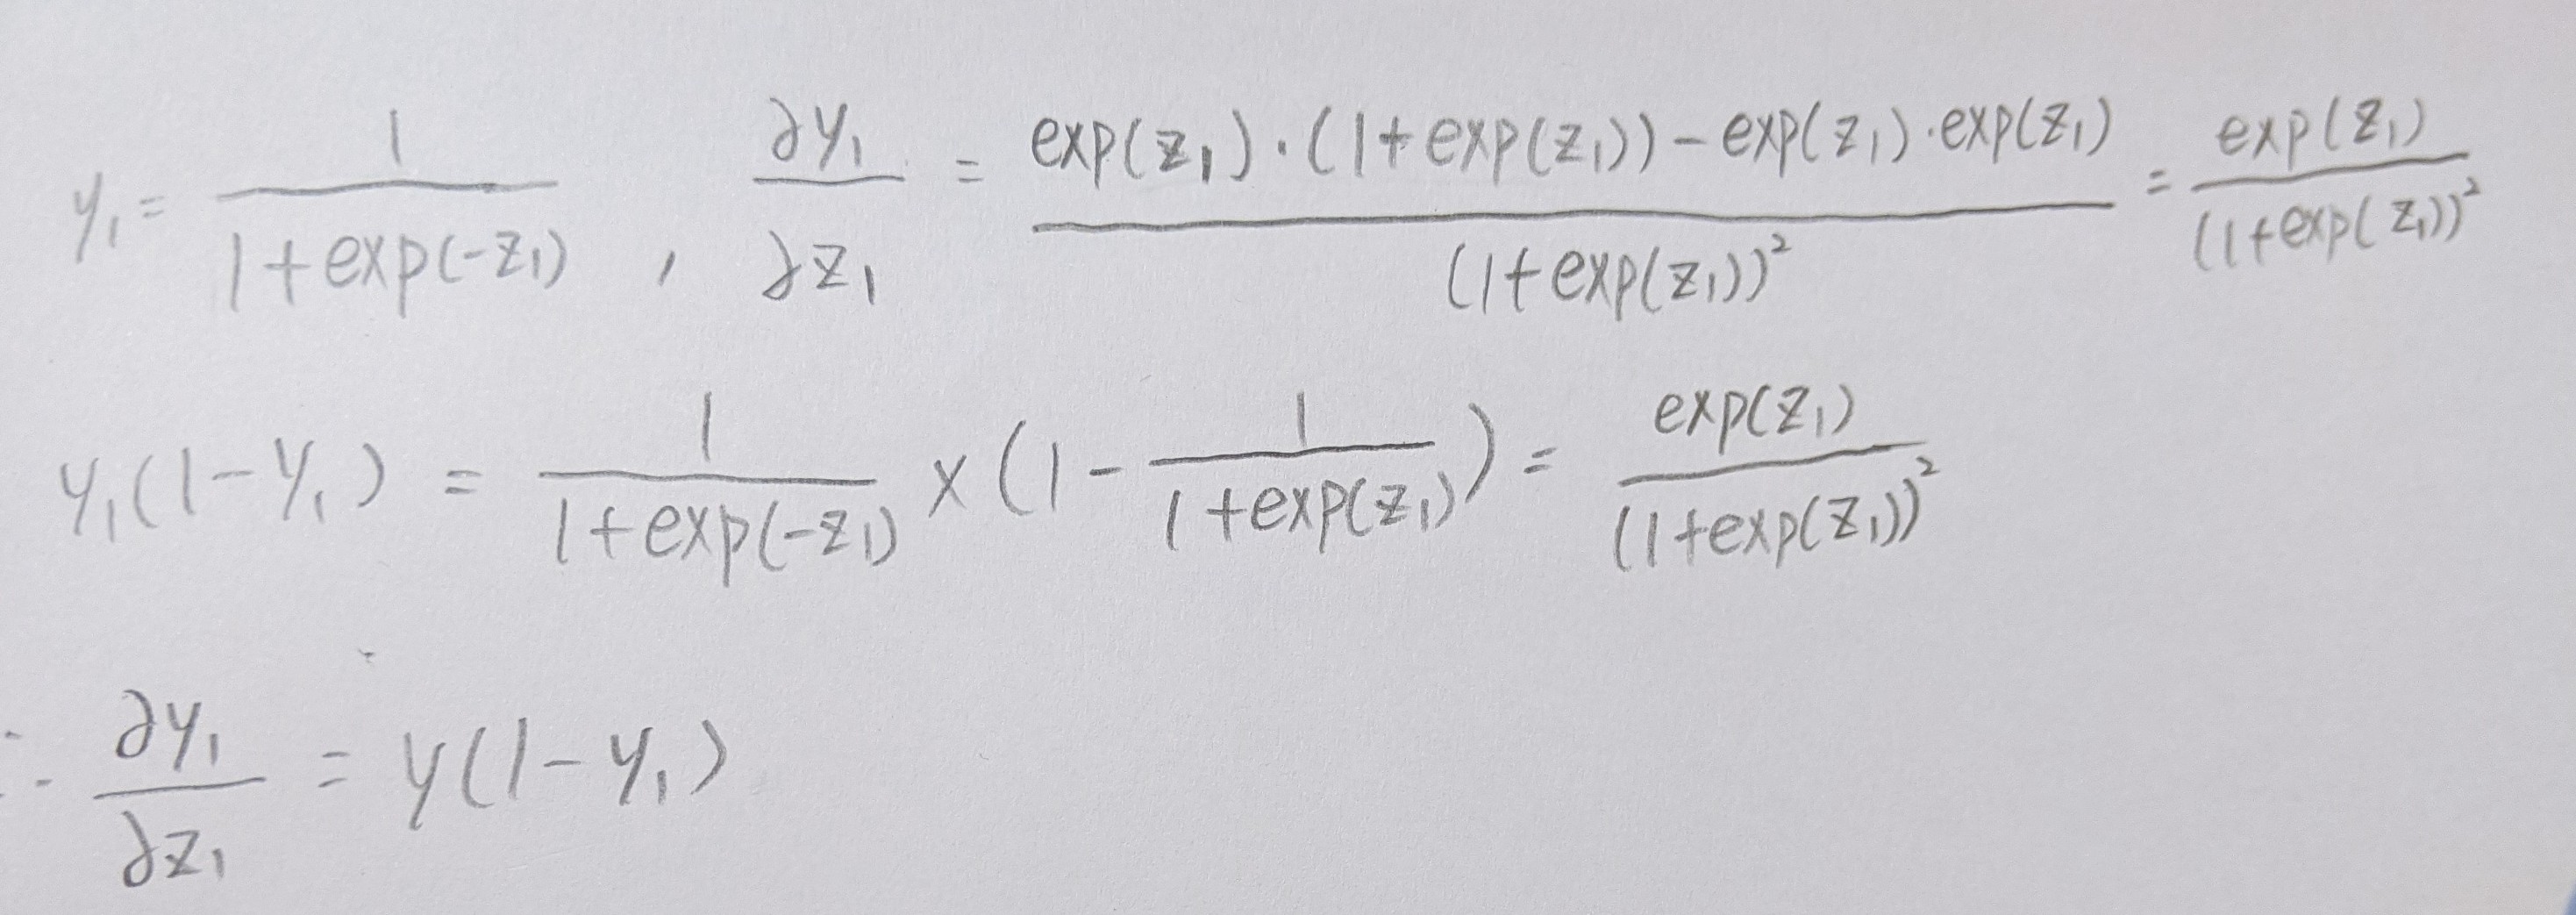 y₁ = 1/(1+exp(-z₁)) , ∂y₁/∂z₁ = (exp(z₁)·(1+exp(z₁))-exp(z₁)·exp(z₁))/(1+exp(z₁))² = exp(z₁)/(1+exp(z₁))²
y₁(1-y₁) = 1/(1+exp(-z₁)) × (1 - 1/(1+exp(z₁))) = exp(z₁)/(1+exp(z₁))²
∴ ∂y₁/∂z₁ = y(1-y₁)